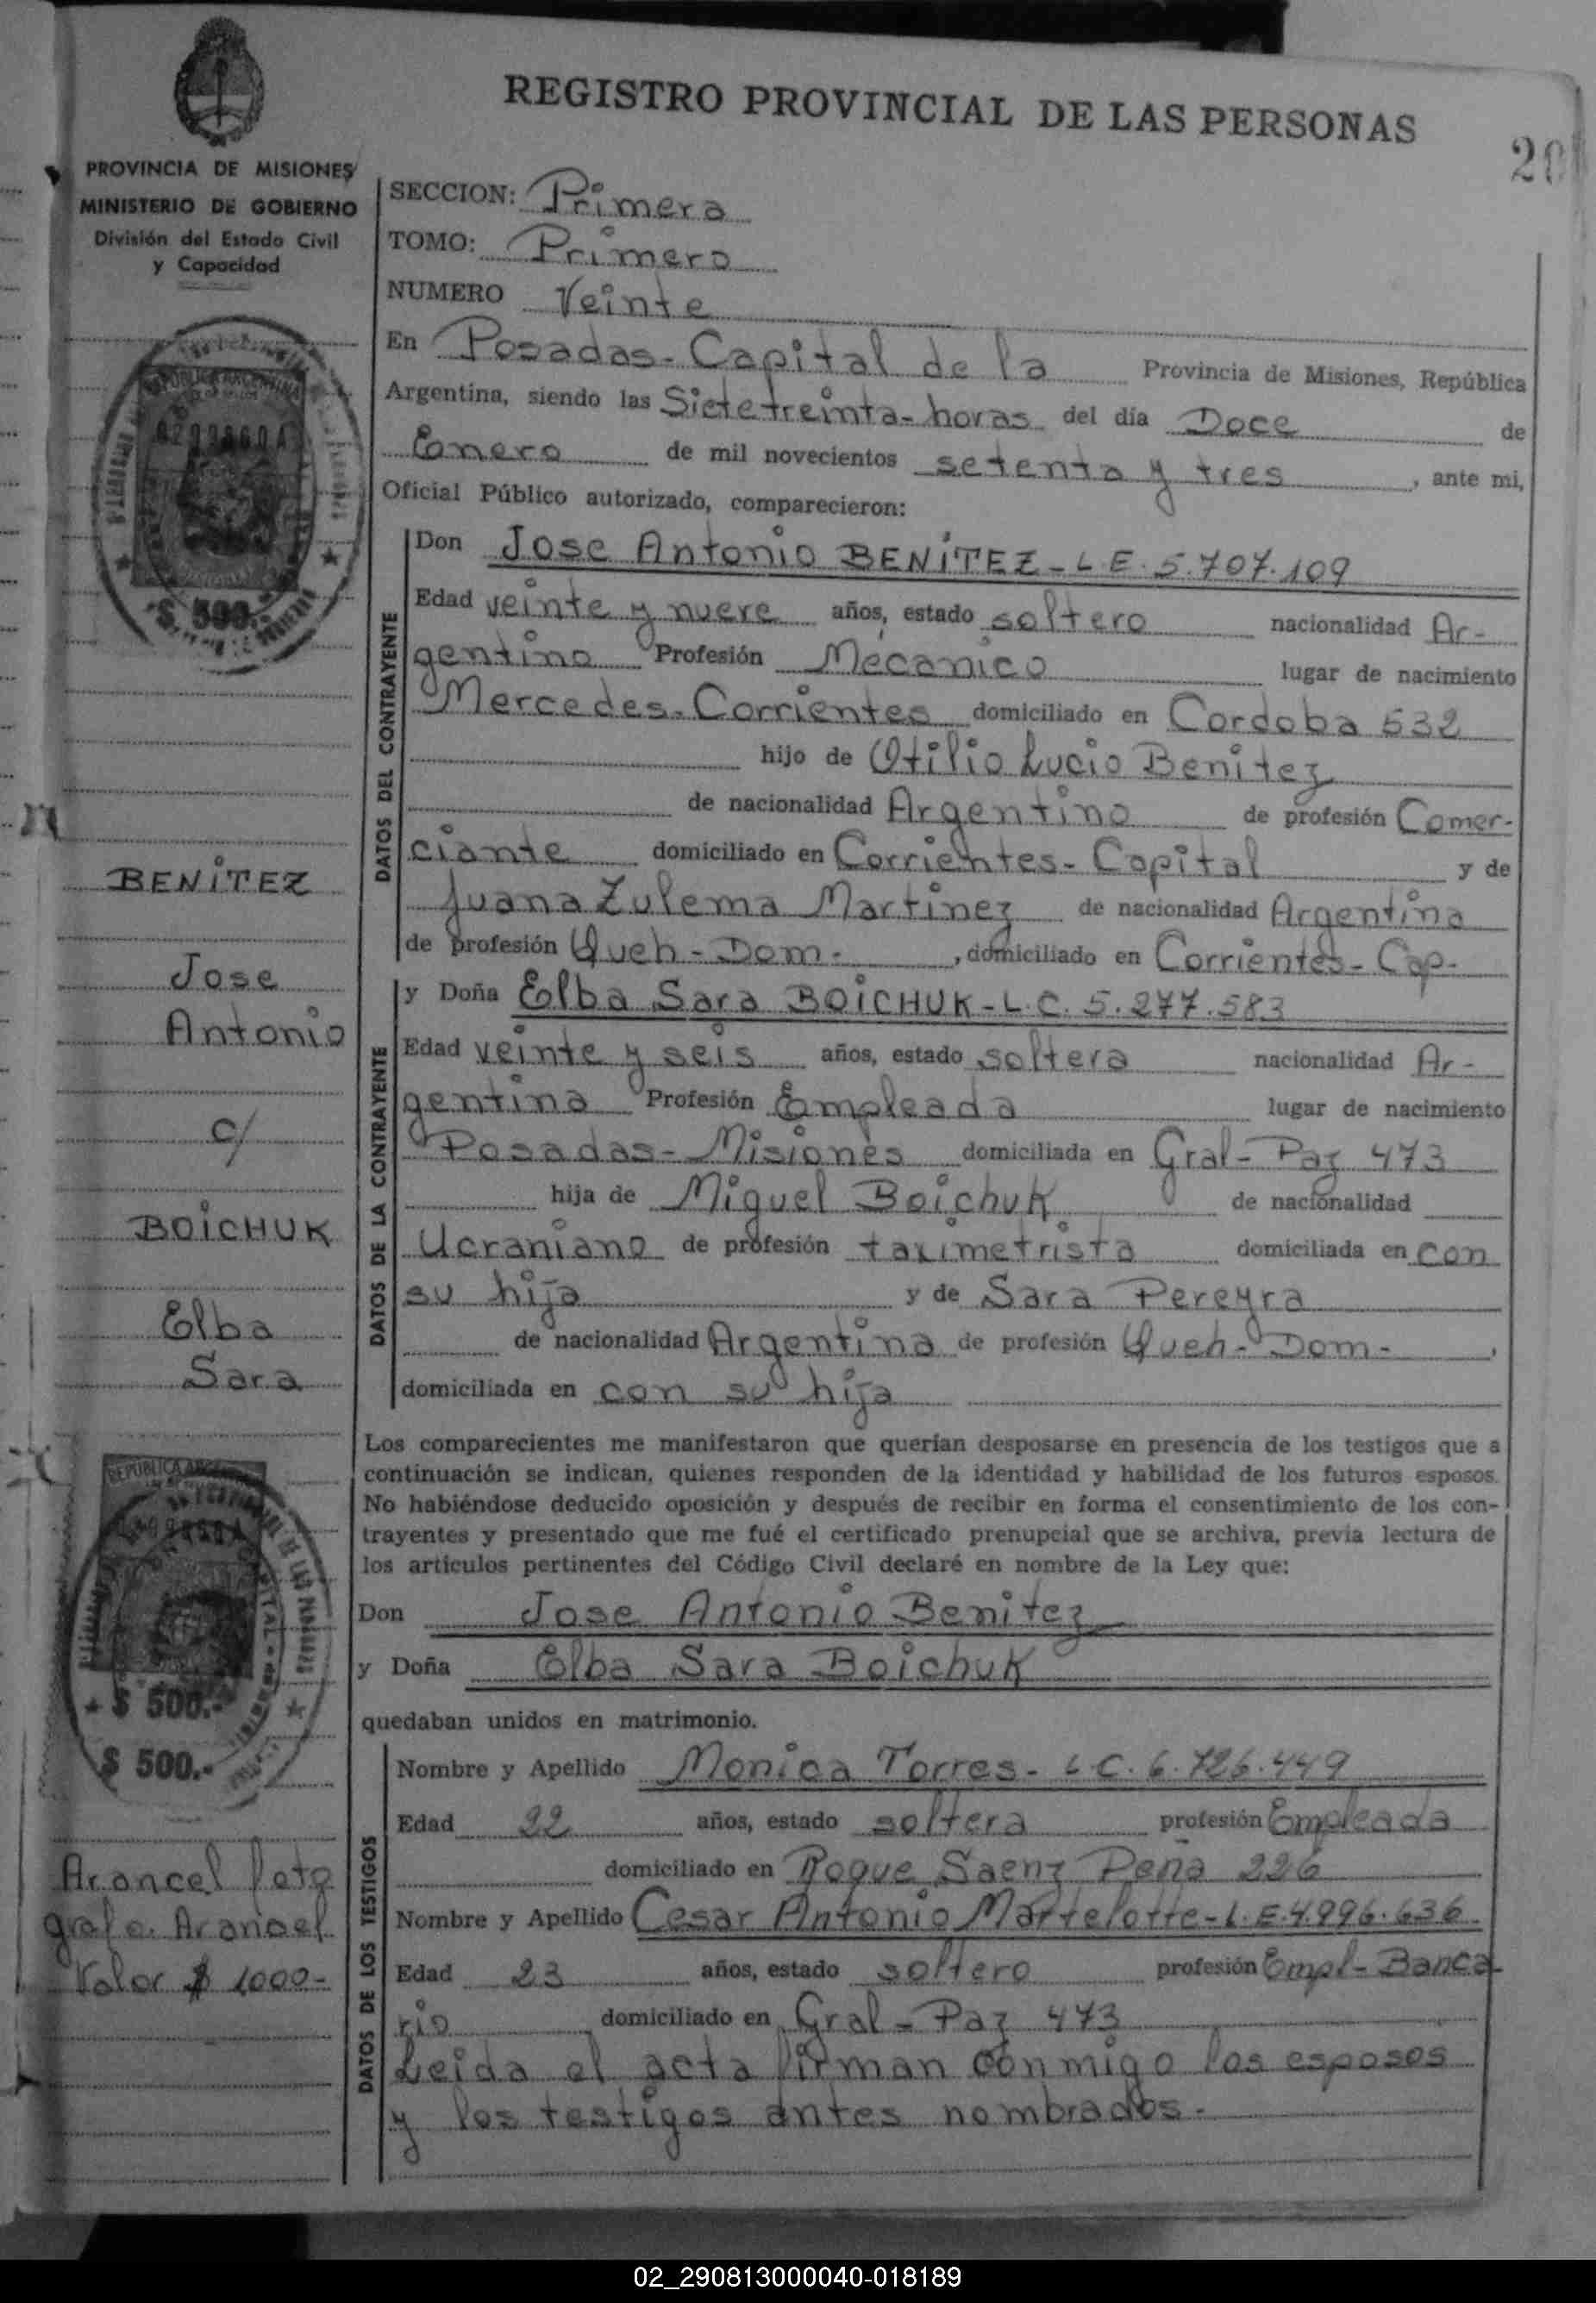 REGISTRO PROVINCIAL DE LAS PERSONAS
20
PROVINCIA DE MISIONES
MINISTERIO DE GOBIERNO
División del Estado Civil
y Capacidad
SECCION: Primera
TOMO: Primero
NUMERO Veinte
En Posadas-Capital de la Provincia de Misiones, República
Argentina, siendo las Sietetreinta-horas del día Doce de
Enero de mil novecientos setenta y tres, ante mi,
Oficial Público autorizado, comparecieron:
DATOS DEL CONTRAYENTE
Don Jose Antonio BENITEZ-L.E. 5.707.109
Edad veinte y nueve años, estado soltero nacionalidad Ar-
gentino Profesión Mecanico lugar de nacimiento
Mercedes-Corrientes domiciliado en Cordoba 532
hijo de Otilio Lucio Benitez
de nacionalidad Argentino de profesión Comer-
ciante domiciliado en Corrientes-Capital y de
Juana Zulema Martinez de nacionalidad Argentina
de profesión Queh-Dom-, domiciliado en Corrientes-Cap-
DATOS DE LA CONTRAYENTE
y Doña Elba Sara BOICHUK-L.C. 5.277.583
Edad veinte y seis años, estado soltera nacionalidad Ar-
gentina Profesión Empleada lugar de nacimiento
Posadas-Misiones domiciliada en Gral-Paz 473
hija de Miguel Boichuk de nacionalidad
Ucraniano de profesión taximetrista domiciliada en con
su hija y de Sara Pereyra
de nacionalidad Argentina de profesión Queh-Dom-,
domiciliada en con su hija
Los comparecientes me manifestaron que querían desposarse en presencia de los testigos que a
continuación se indican, quienes responden de la identidad y habilidad de los futuros esposos.
No habiéndose deducido oposición y después de recibir en forma el consentimiento de los con-
trayentes y presentado que me fué el certificado prenupcial que se archiva, previa lectura de
los artículos pertinentes del Código Civil declaré en nombre de la Ley que:
Don Jose Antonio Benitez
y Doña Elba Sara Boichuk
quedaban unidos en matrimonio.
DATOS DE LOS TESTIGOS
Nombre y Apellido Monica Torres-L.C. 6.726.449
Edad 22 años, estado soltera profesión Empleada
domiciliado en Roque Saenz Peña 226
Nombre y Apellido Cesar Antonio Martelotte-L.E.4.996.636
Edad 23 años, estado soltero profesión Empl-Banca
rio domiciliado en Gral-Paz 473
Leida el acta firman conmigo los esposos
y los testigos antes nombrados-
REPUBLICA ARGENTINA
$ 500.-
BENITEZ
Jose
Antonio
c/
BOICHUK
Elba
Sara
REPUBLICA ARGENTINA
$ 500.-
$ 500.-
Arancel foto
grafo. Arancel
Valor $ 1000-
02_290813000040-018189